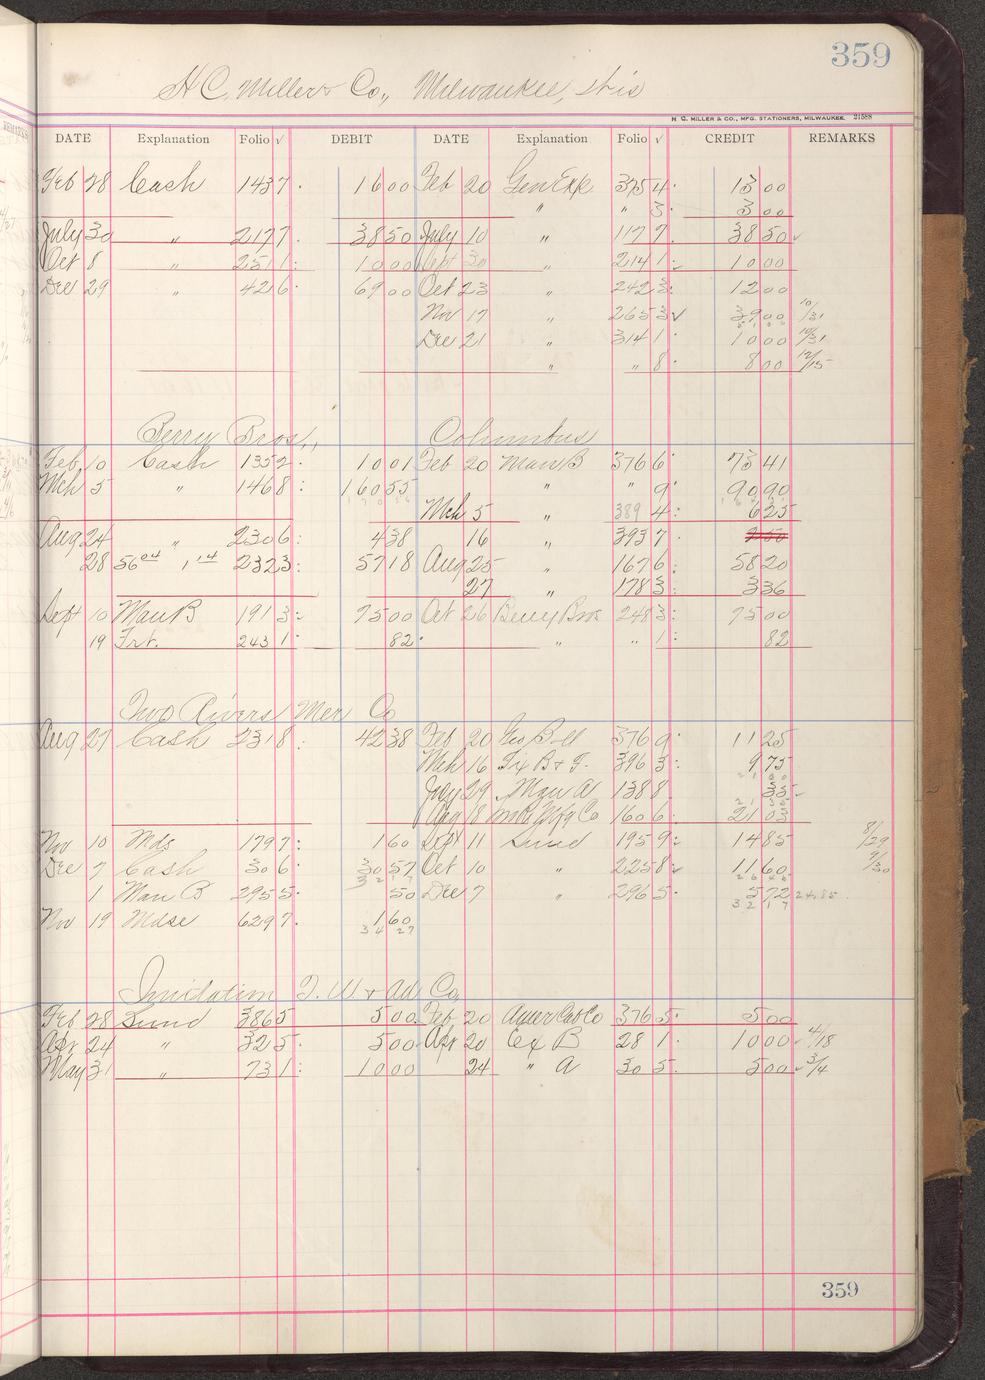 359
H C. Miller & Co., Milwaukee, Wis
N C. MILLER & CO., MFG. STATIONERS, MILWAUKEE 21588
DATE Explanation Folio √ DEBIT DATE Explanation Folio √ CREDIT REMARKS
Feb 28 Cash 143 7 16 00 Feb 20 Gen Exp 375 4 13 00
" " 3 3 00
July 30 " 217 7 38 50 July 10 " 117 7 38 50
Oct 8 " 251 1 10 00 Sept 30 " 214 1 10 00
Dec 29 " 42 6 69 00 Oct 23 " 242 3 12 00
Nov 17 " 265 3 39 00 10/31
Dec 21 " 314 1 10 00 10/31
" " 8 8 00 12/15
Berry Bros., Columbus
Feb 10 Cash 135 2 10 01 Feb 20 Man B 376 6 73 41
Mch 5 " 146 8 160 55 " " 9 90 90
Mch 5 " 389 4 6 25
Aug 24 " 230 6 4 38 16 " 393 7
28 56 04 1 14 232 3 57 18 Aug 25 " 167 6 58 20
27 " 178 3 3 36
Sept 10 Man B 191 3 75 00 Oct 26 Berry Bros 248 3 75 00
19 Frt. 243 1 82 " " 1 82
Two Rivers Mer Co
Aug 27 Cash 231 8 42 38 Feb 20 376 9 11 25
Mch 16 Fix B & F. 396 3 9 75
July 29 Man A 138 8 35
Aug 18 Mfg Co 160 6 21 03
Nov 10 Mds 179 7 1 60 Sept 11 Sund 195 9 14 85 8/29
Dec 7 Cash 30 6 30 57 Oct 10 " 225 8 11 60 9/30
1 Man B 295 5 50 Dec 7 " 296 5 5 72 24.85
Nov 19 Mdse 629 7 1 60
34 27
T. W. & Ad Co.
Feb 28 Sund 386 5 5 00 Feb 20 Amer Cab Co 376 5 5 00
Apr 24 " 32 5 5 00 Apr 20 Ex B 28 1 10 00 4/18
May 31 " 73 1 10 00 24 " A 30 5 5 00 3/4
359